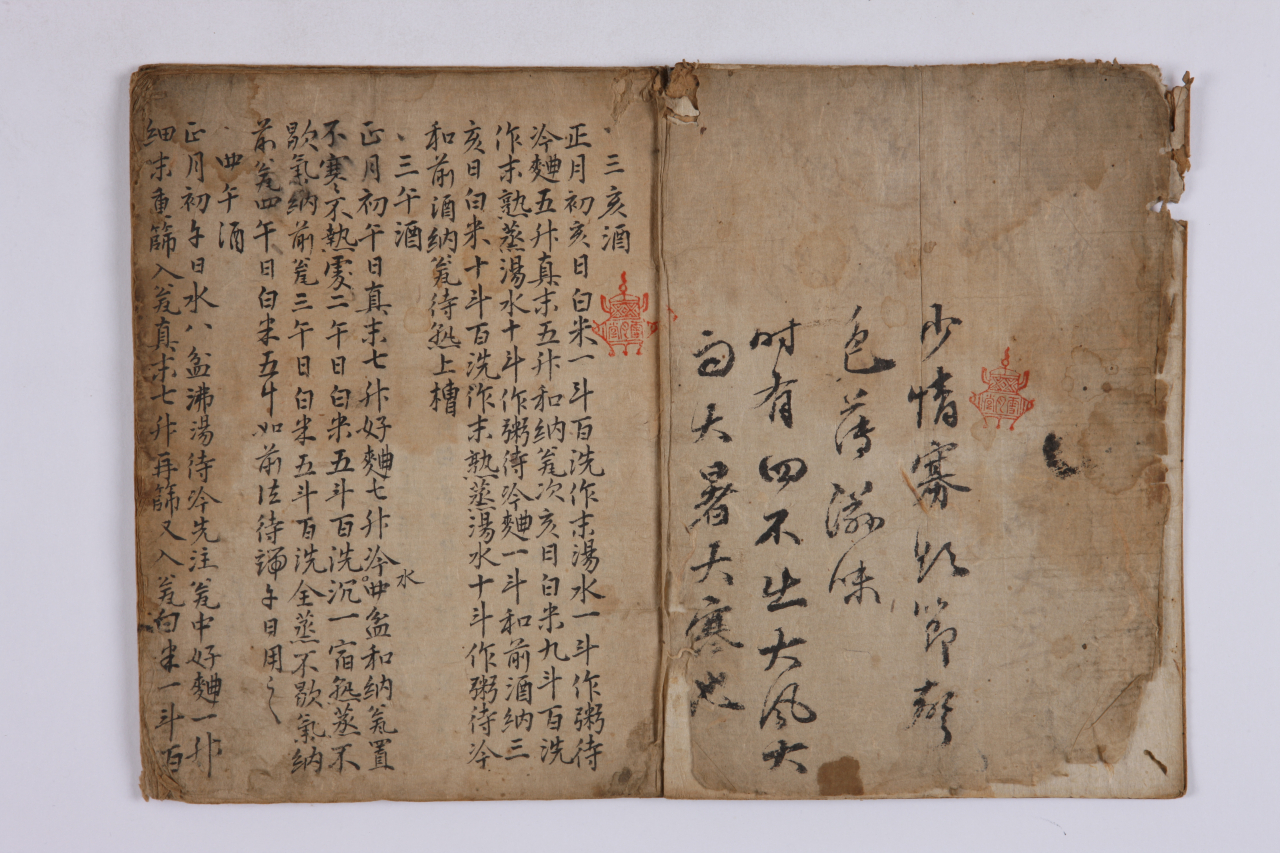 少情寡慾節聲
色薄滋味
時有四不出大風大
雨大暑大寒也
、三亥酒
正月初亥日白米一斗百洗作末湯水一斗作粥待
冷麯五升真末五升和納瓮次亥日白米九斗百洗
作末熟蒸湯水十斗作粥待冷麯一斗和前酒納三
亥日白米十斗百洗作末熟蒸湯水十斗作粥待冷
和前酒納瓮待熟上槽
、三午酒
正月初午日真末七升好麯七升冷水四盆和納瓮置
不寒不熱處二午日白米五斗百洗沉一宿熟蒸不
歇氣納前瓮三午日白米五斗百洗全蒸不歇氣納
前瓮四午日白米五斗如前法待端午日用之
、四午酒
正月初午日水八盆沸湯待冷先注瓮中好麯一升
細末重篩入瓮真末七升再篩又入瓮白米一斗百